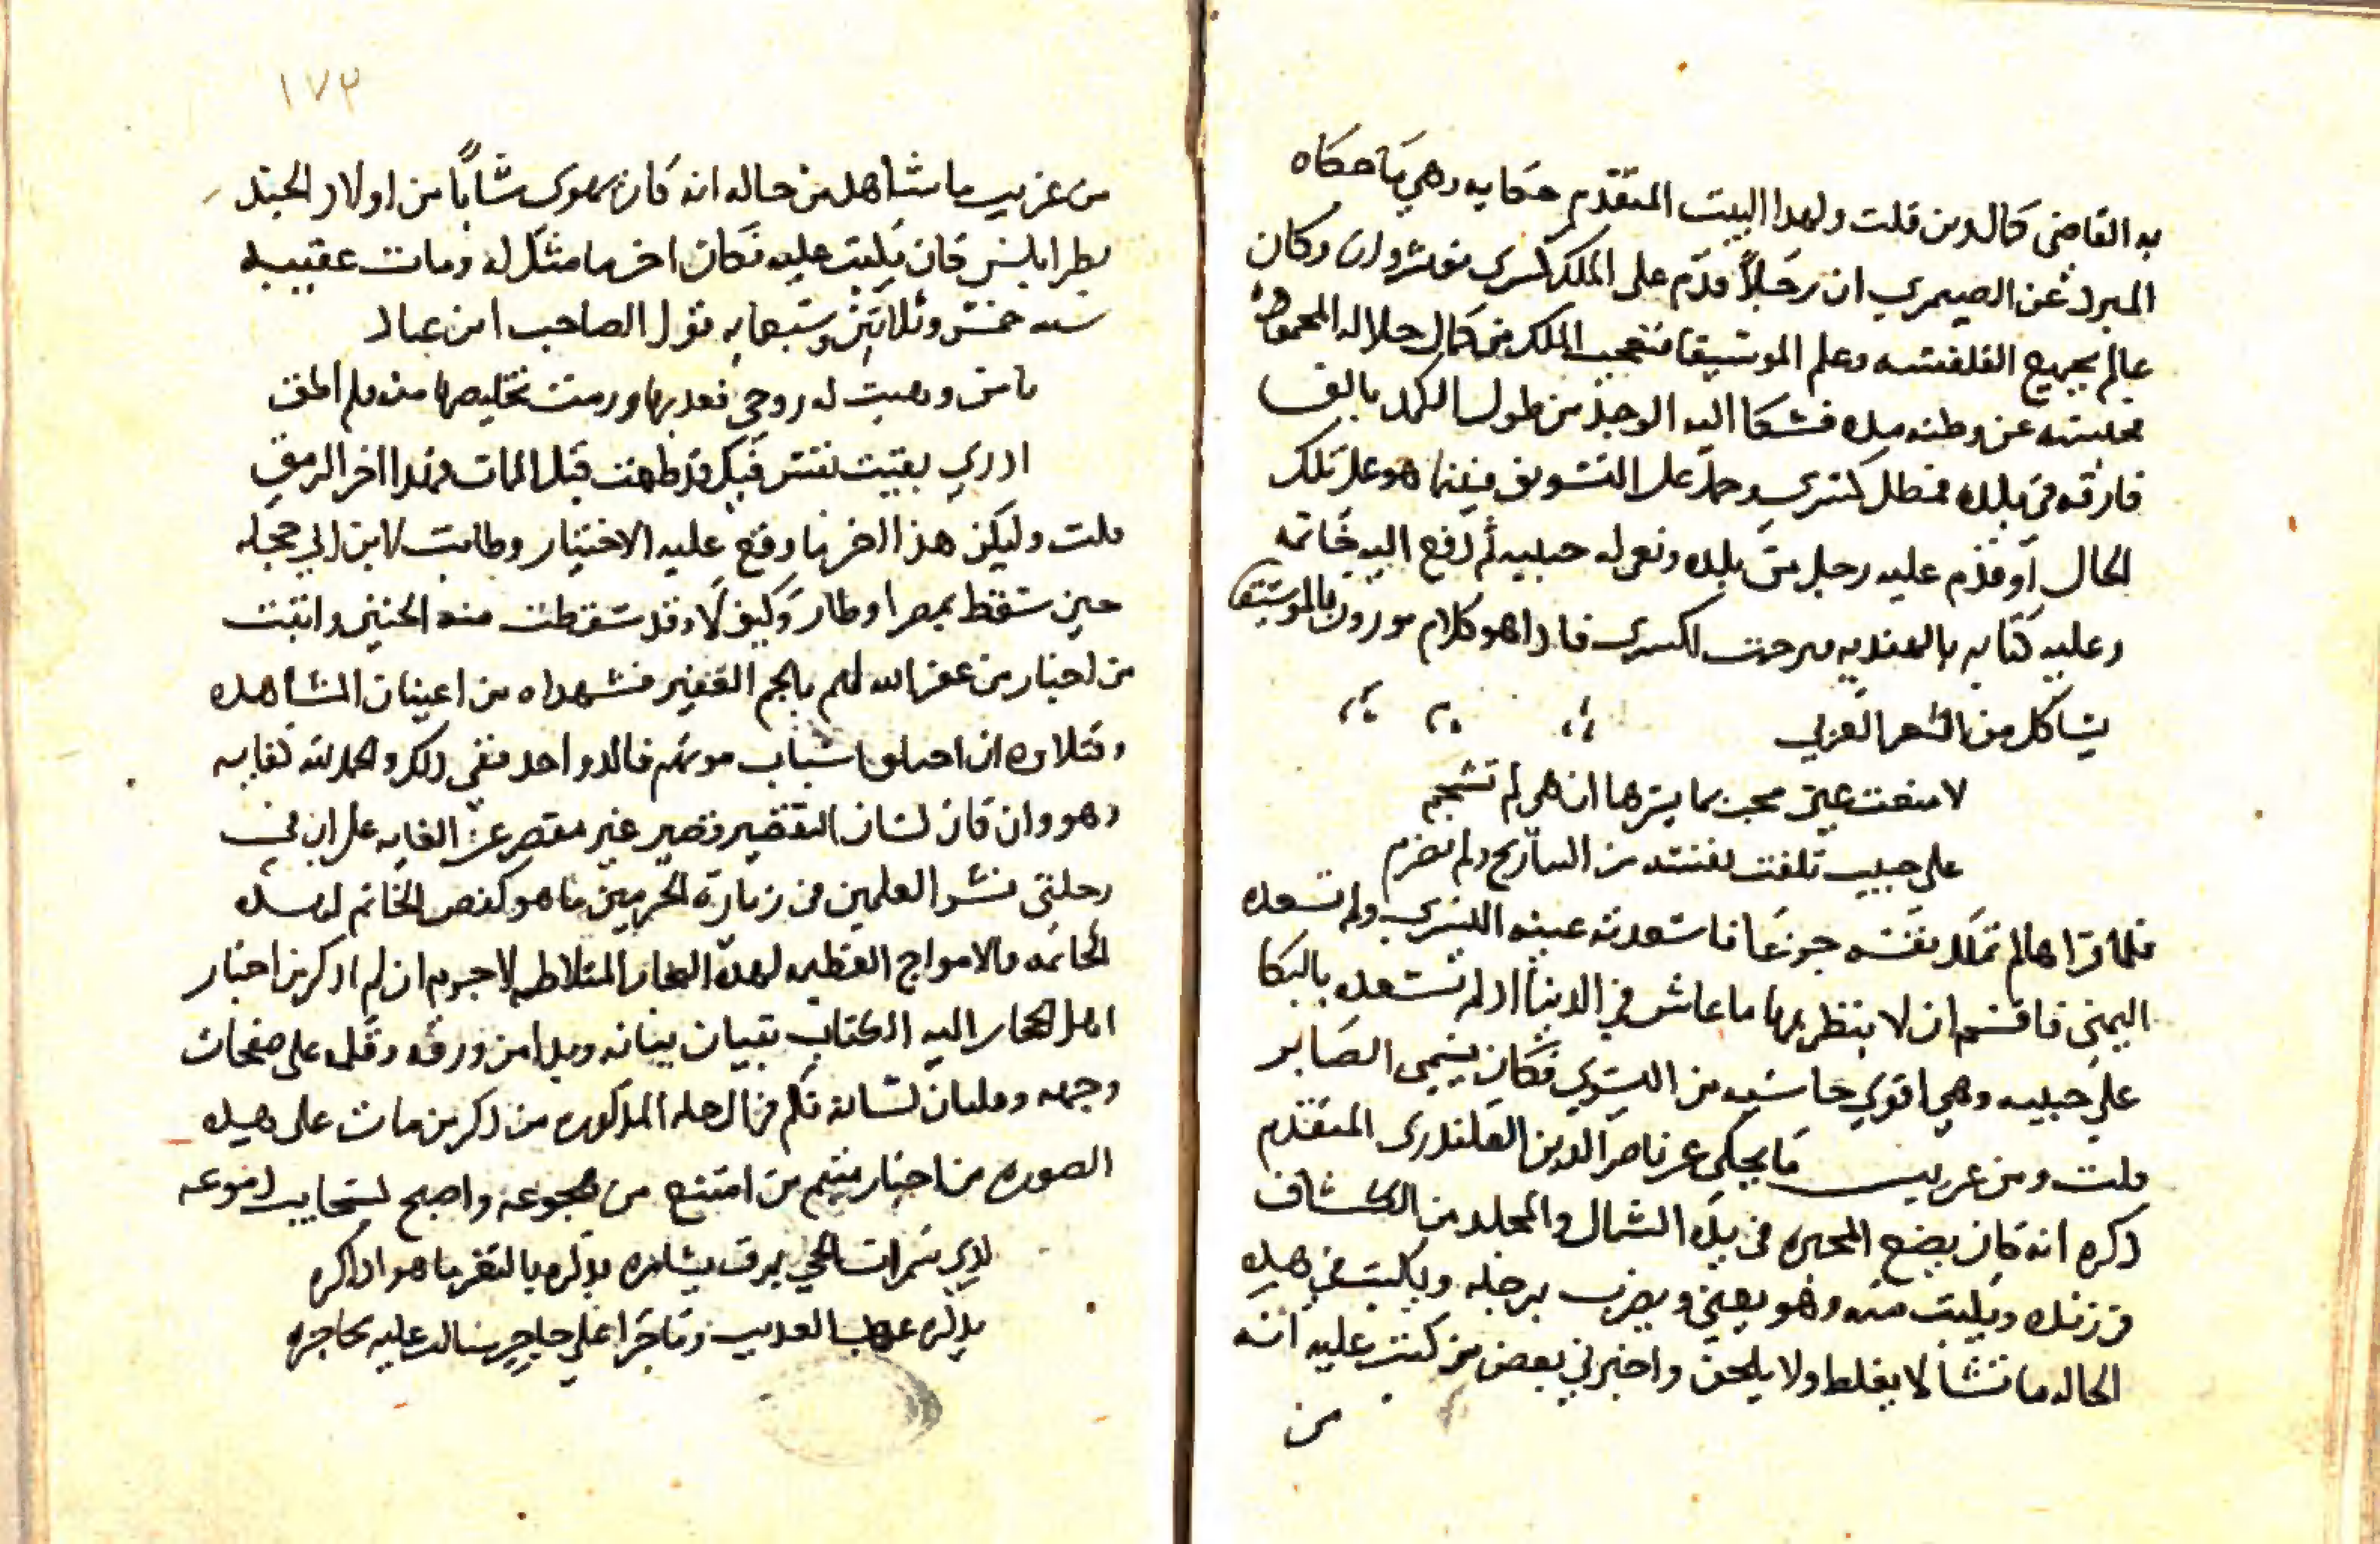 به القاضي كمال الدين قلت ولهدا البيت المتقدم حكايه وهي ما حكاه
المبرد عن الصيمري ان رجلاً قدم على الملك كسرى نوشروان وكان
عالم بجميع الفلفسه وعلم الموسيقا فتعجب الملك من كمال حلاله المحموده
فحبسه عن وطنه مده فشكا اليه الوجد من طول الكمد بالف
فارقه في بلده فمطل كسري وحمله على التسويف فبينما هو على تلك
الحال او قدم عليه رجل من بلده ونعى له حبيبه ثم دفع اليه خاتمه
وعليه كتابه بالهنديه فترجمت لكسرى فاداهو كلام موزون بالموسيقا
يشاكل من الشعر العربي
لا متعت عين محب بما يسرها ان هي لم تسجم
على حبيب تلفت نفسه من التباريح ولم تصرم
فلما قراها لم تملك نفسه جوزعا فاسعدته عينه اليسري ولم تسعده
اليمني فاقسم ان لا ينظر بها ما عاش في الدنيا اد لم تسعده بالبكا
على حبيبه وهي اقوي حاسيه من اليسري فكان يسمى الصابر
قلت ومن غريب ما يحكى عن ناصر الدين القلندرى المتقدم
دكره انه كان يضع المحبره في يده الشمال والمجلد من الكشاف
في زنده ويكتب منه وهو يغني ويضرب برجله ويكتب في هده
الحاله ما تشا لا يغلط ولا يلحن واخبرني بعض من كتب عليه انه
من
١٧٣
من غريب ما شاهد من حاله انه كان يهوى شاباً من اولاد الجند
بطرابلس كان يكتب عليه فكان اخر ما مثل له ومات عقيبه
سنه خمس وثلاثين وسبعمايه قول الصاحب ابن عباد
يا من وهبت له روحي فعدبها ورمت تخليصها منه فلم اطق
ادرك بقيت نفس فيك قد طهت قبل الممات فهذا اخر الرمق
قلت وليكن هذا اخر ما وقع عليه الاختيار وطابت لابن ابي حجله
حين سقط بمصر اوطار وكيف لا وقد سقطت منه الحنين واتيت
من اخبار من غفر الله لهم بالجم الغفير فشهداه من اعيان المشاهده
وقتلاه ان اختلف اسباب موتهم فالدا واحد ففي دلك والحمد لله كفايه
وهو وان كان لسان التقصير قصير غير مقصر عن الغايه على ان في
رحلتي نشر العلمين في زيارة الحرمين ما هو كفص الخاتم لهده
الخاتمه والامواج العظيمه لهده البحار المتلاطمه لا جرم ان لم ادكر من اخبار
اهل الحجاز اليه الكتاب بتبيان بنانه وبدا من ورقه وقلمه على صفحات
وجهه وفلتات لسانه فكم في الرحله المدكوره من دكر من مات على هده
الصوره من اخبار متيم من امتنع من هجوعه واصبح لسحايب دموعه
لدي سمرات الحي برق يشامره يدكره بالثغر ما هو اداكره
يدكره عهد العديب وماجرا على حاجر سالت عليه محاجره